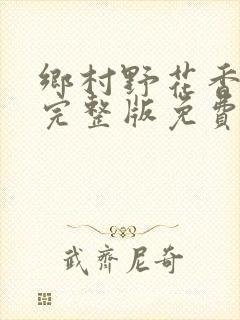 鄉村野花香
完整版免費
武齊尼奇